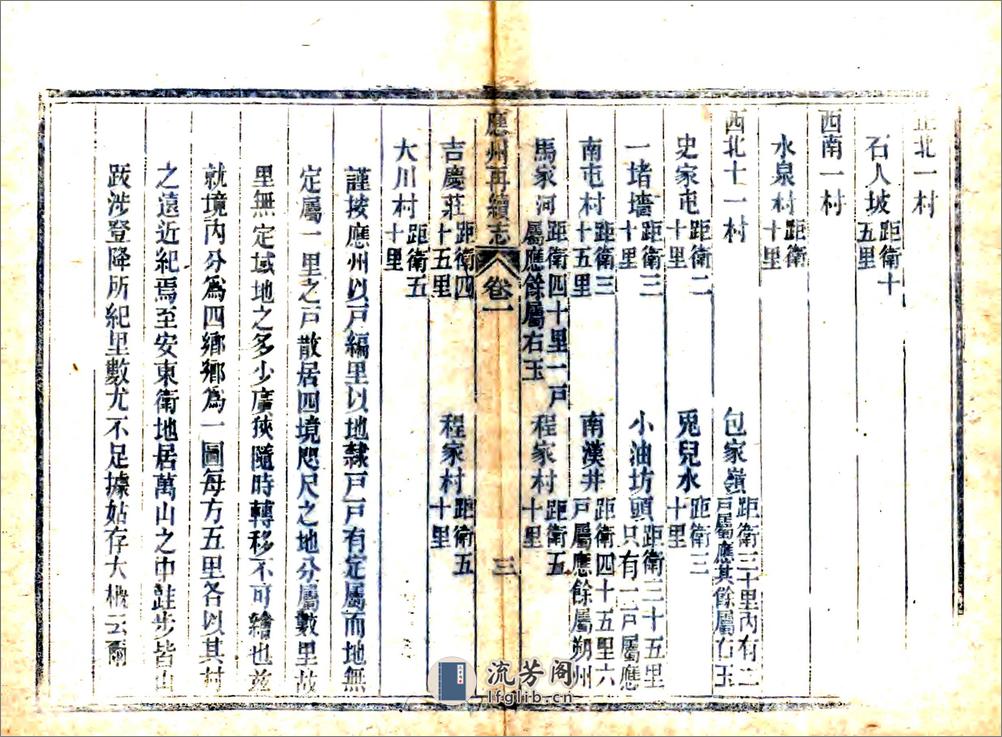 正北一村
石人坡 距衛十五里
西南一村
水泉村 距衛十里
西北十一村 包家嶺 距衛三十里內有二戶屬應其餘屬右玉
史家屯 距衛二十里 兎兒水 距衛三十里
一堵墻 距衛三十里 小油坊頭 距衛三十五里只有一戶屬應
南屯村 距衛三十五里 南漢井 距衛四十五里六戶屬應餘屬朔州
馬家河 距衛四十里一戶屬應餘屬右玉 程家村 距衛五十里
應州再續志 卷一 三
吉慶莊 距衛四十五里 程家村 距衛五十里
大川村 距衛五十里
謹按應州以戸編里以地隸戸戸有定屬而地無
定屬一里之戸散居四境咫尺之地分屬數里故
里無定域地之多少廣狹隨時轉移不可繪也玆
就境內分爲四鄉鄉爲一圖每方五里各以其村
之遠近紀焉至安東衛地居萬山之中跬步皆山
跋涉登降所紀里數尤不足據姑存大槪云爾
流芳阁
lfglib.cn